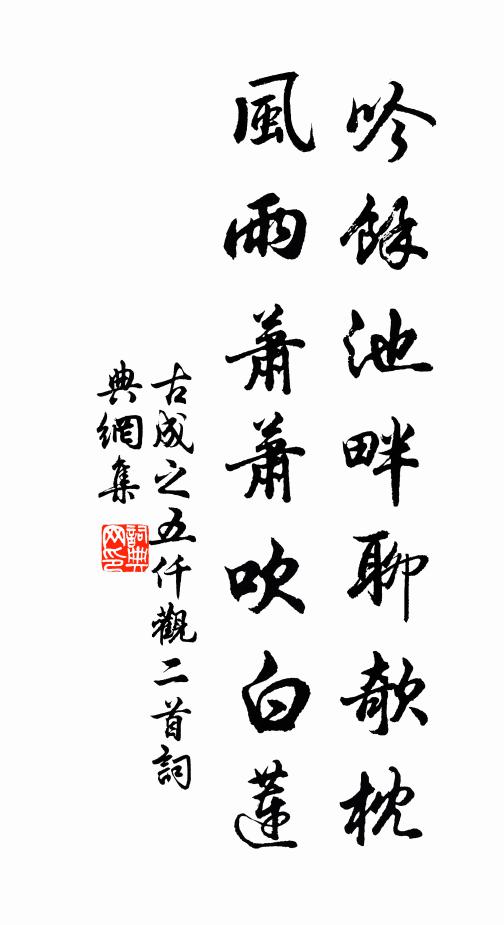 吟餘池畔聊欹枕
風雨蕭蕭吹白蓮
古成之五仟觀二首詞
典網集
詞典
网印